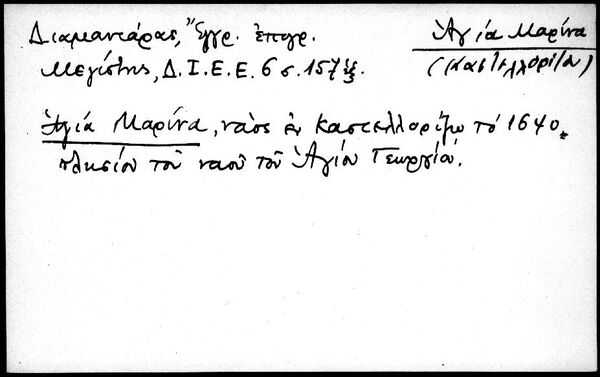 Διαμαντάρας, Ἔγγρ. ἐπιγρ.
Μεγίστης, Δ.Ι.Ε.Ε. 6 σ. 157 ἑξ.
Ἁγία Μαρίνα
(Καστελλόριζον)
Ἁγία Μαρίνα, ναὸς ἐν Καστελλορίζῳ τό 1640
πλησίον τοῦ ναοῦ τοῦ Ἁγίου Γεωργίου.